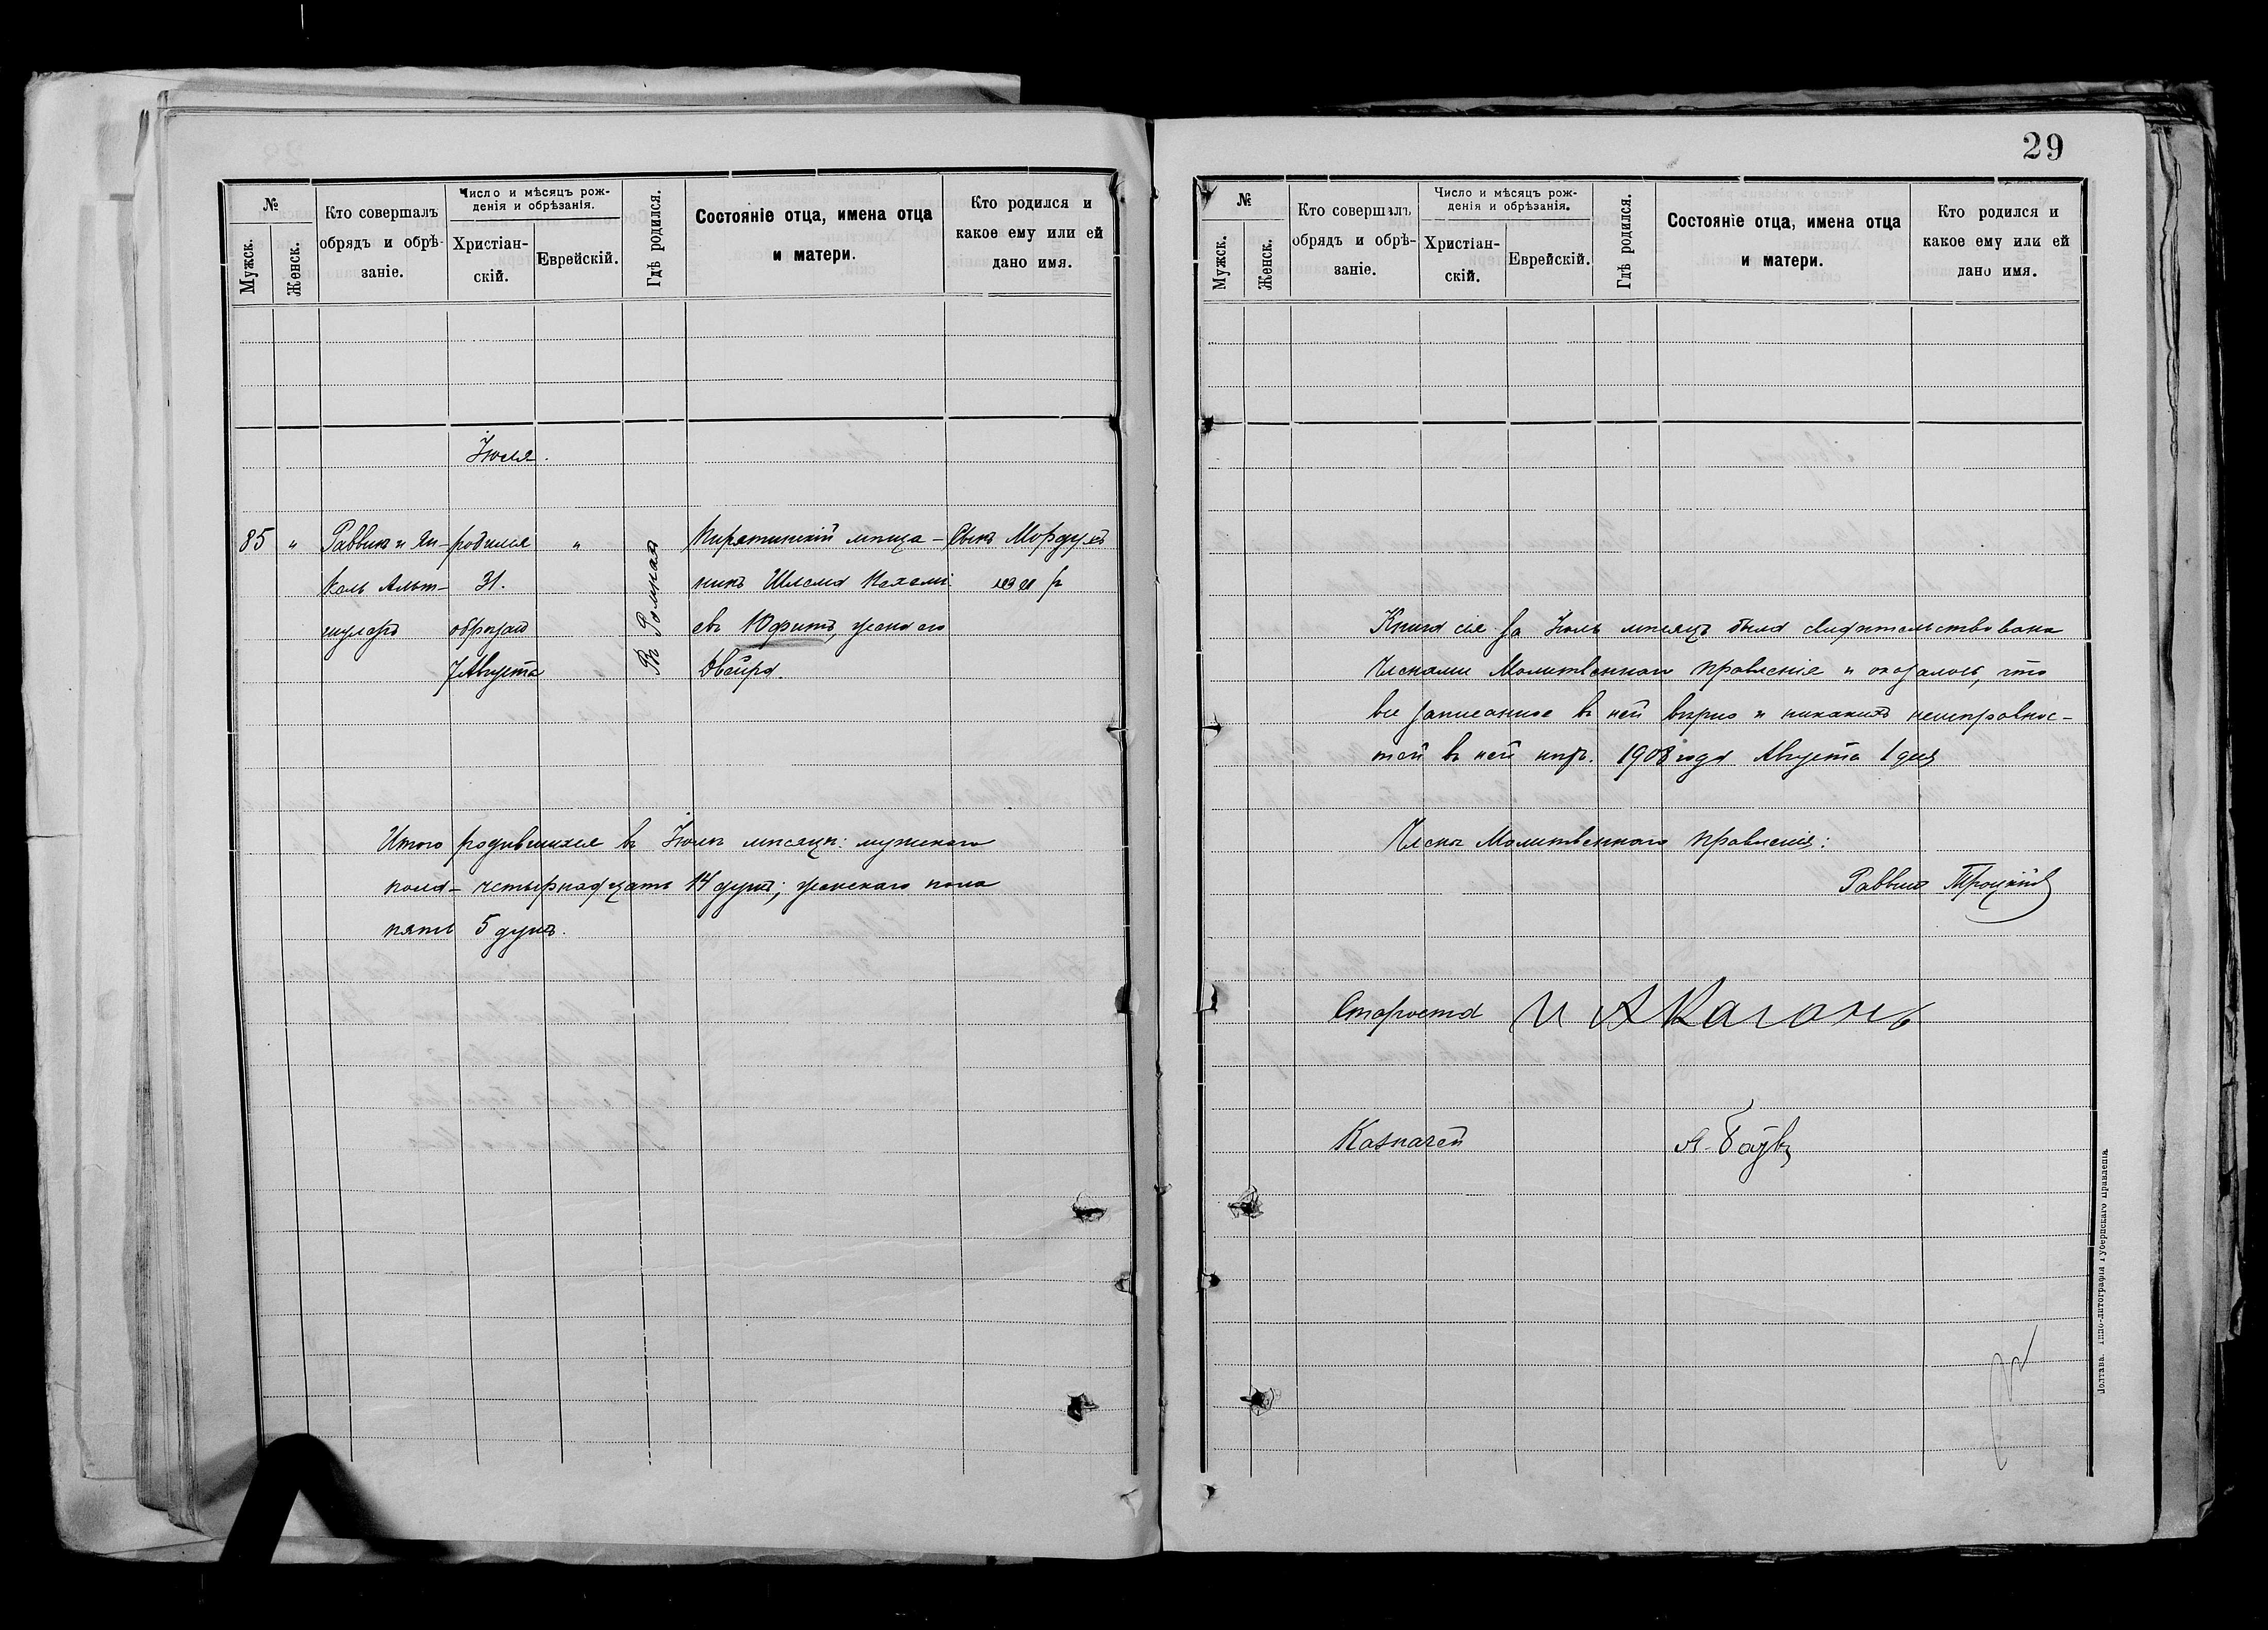 №
Мужск.
Женск.
Кто совершалъ
обрядъ и обрѣ-
заніе.
Число и мѣсяцъ рож-
денія и обрѣзанія.
Христіан-
скій.
Еврейскій.
Гдѣ родился.
Состояніе отца, имена отца
и матери.
Кто родился и
какое ему или ей
дано имя.
Іюля.
85 " Раввинъ и Ян-
кель Альт-
шулеръ
родился
31.
обрѣзан
7 Августа
"
Въ Ромнахъ
Пирятинскій мѣща-
нинъ Шлема
евъ Юфитъ, жена его
Двейра.
Сынъ Мордухъ
Итого родившихся въ Іюлѣ мѣсяцѣ: мужского
пола - четырнадцать 14 душъ; женскаго пола
пять 5 душъ.
29
№
Мужск.
Женск.
Кто совершалъ
обрядъ и обрѣ-
заніе.
Число и мѣсяцъ рож-
денія и обрѣзанія.
Христіан-
скій.
Еврейскій.
Гдѣ родился.
Состояніе отца, имена отца
и матери.
Кто родился и
какое ему или ей
дано имя.
Книга сія за Іюль мѣсяцъ была свидѣтельствована
Членами Молитвеннаго Правленія и оказалось, что
все записанное въ ней вѣрно и никакихъ неисправнос-
тей въ ней нѣтъ. 1908 года Августа 1 дня
Члены Молитвеннаго Правленія:
Раввинъ Троцкій
Староста И А Каганъ
Казначей
Полтава. Типо-литографія Губернскаго Правленія.